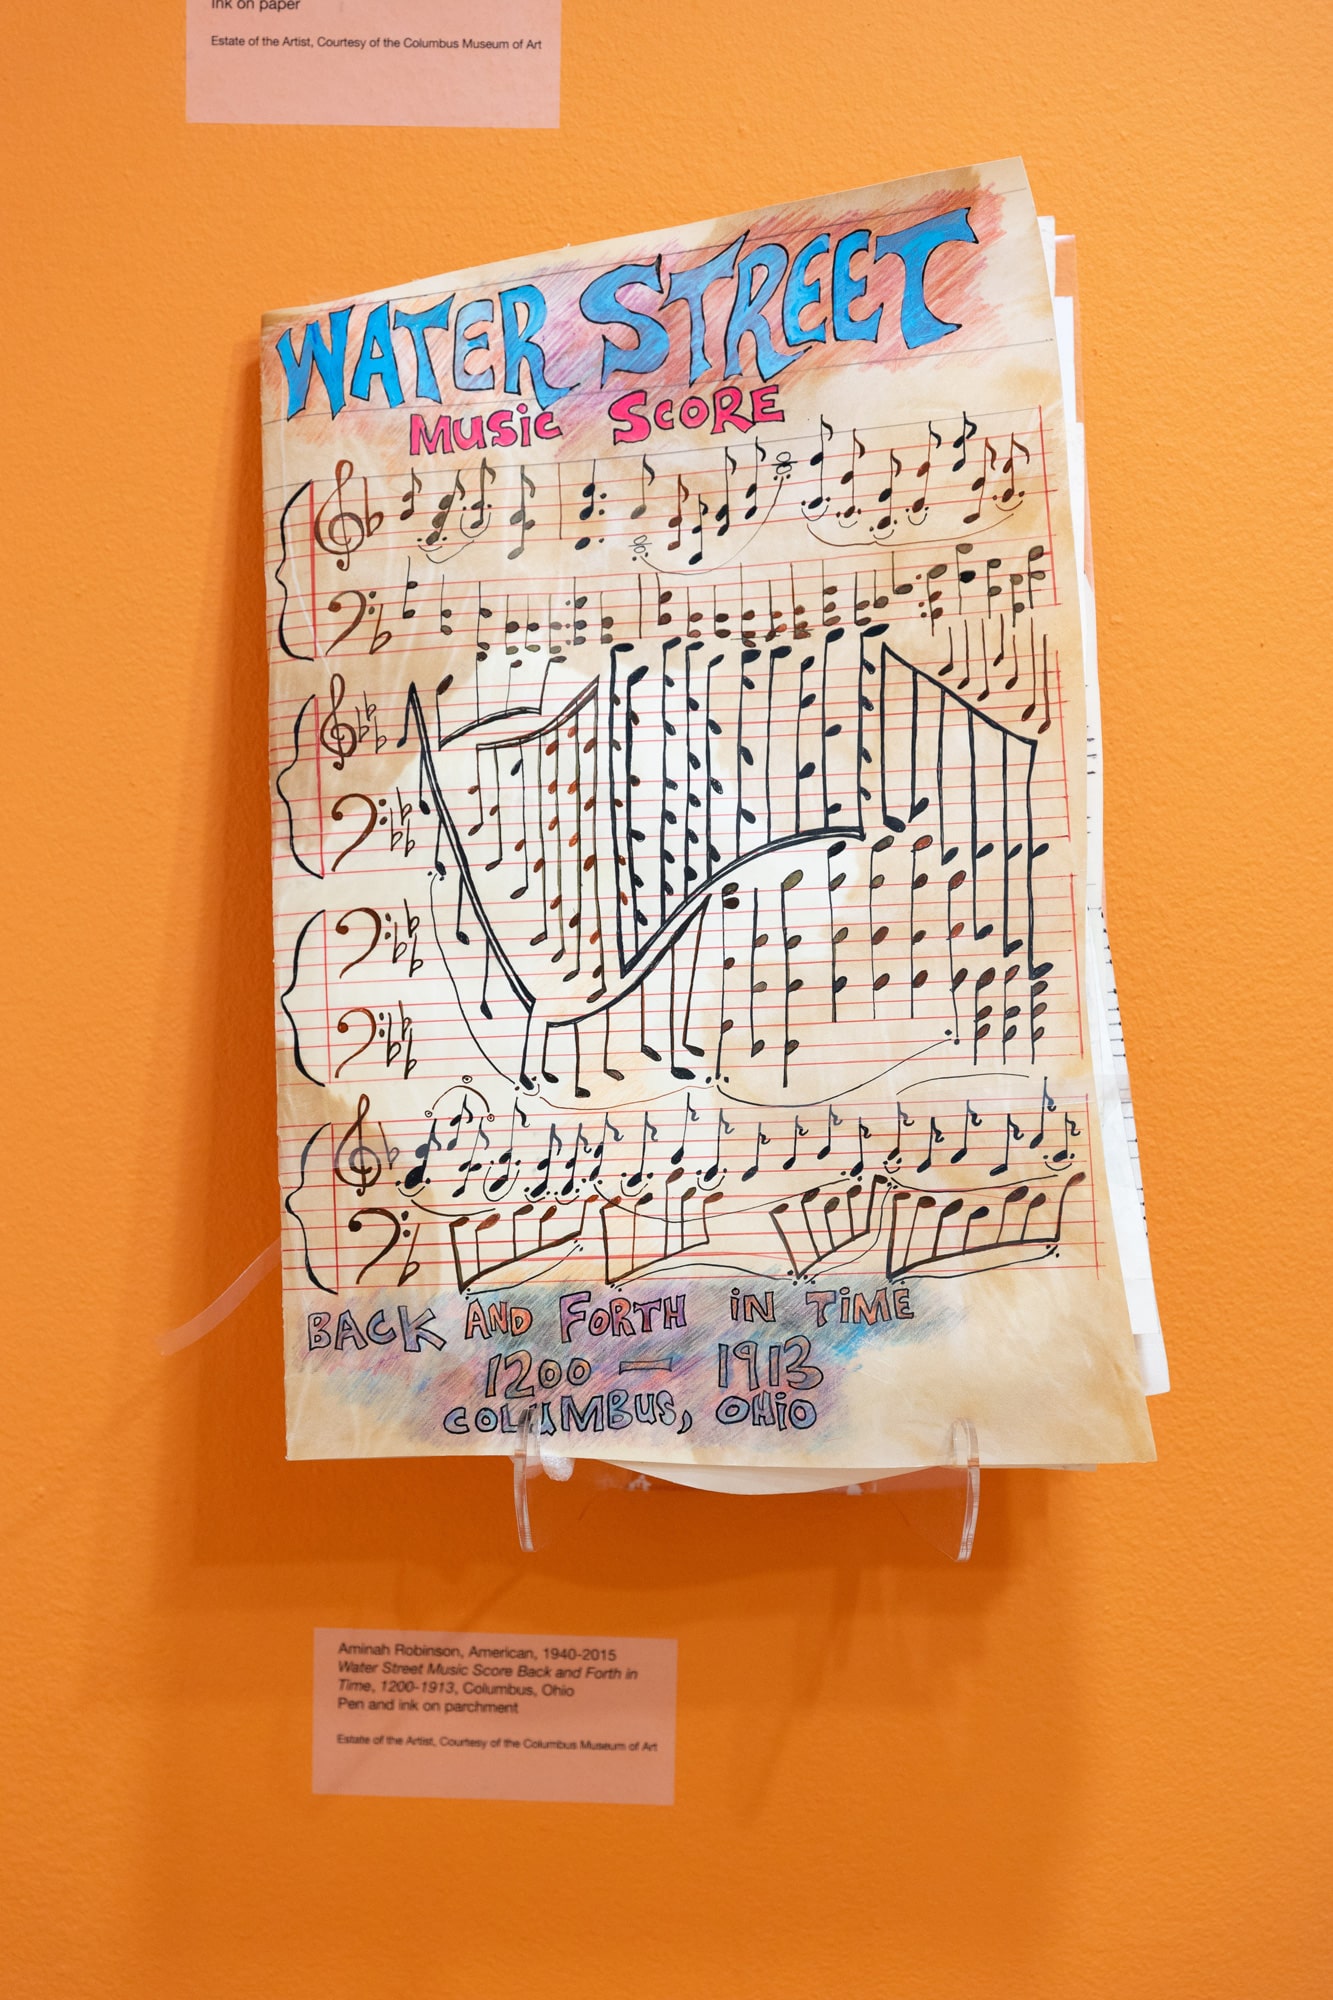 Ink on paper
Estate of the Artist, Courtesy of the Columbus Museum of Art
WATER STREET
MUSiC SCORE
BACK AND FORTH iN TiME
1200 — 1913
COLUMBUS, OHiO
Aminah Robinson, American, 1940-2015
Water Street Music Score Back and Forth in
Time, 1200-1913, Columbus, Ohio
Pen and ink on parchment
Estate of the Artist, Courtesy of the Columbus Museum of Art